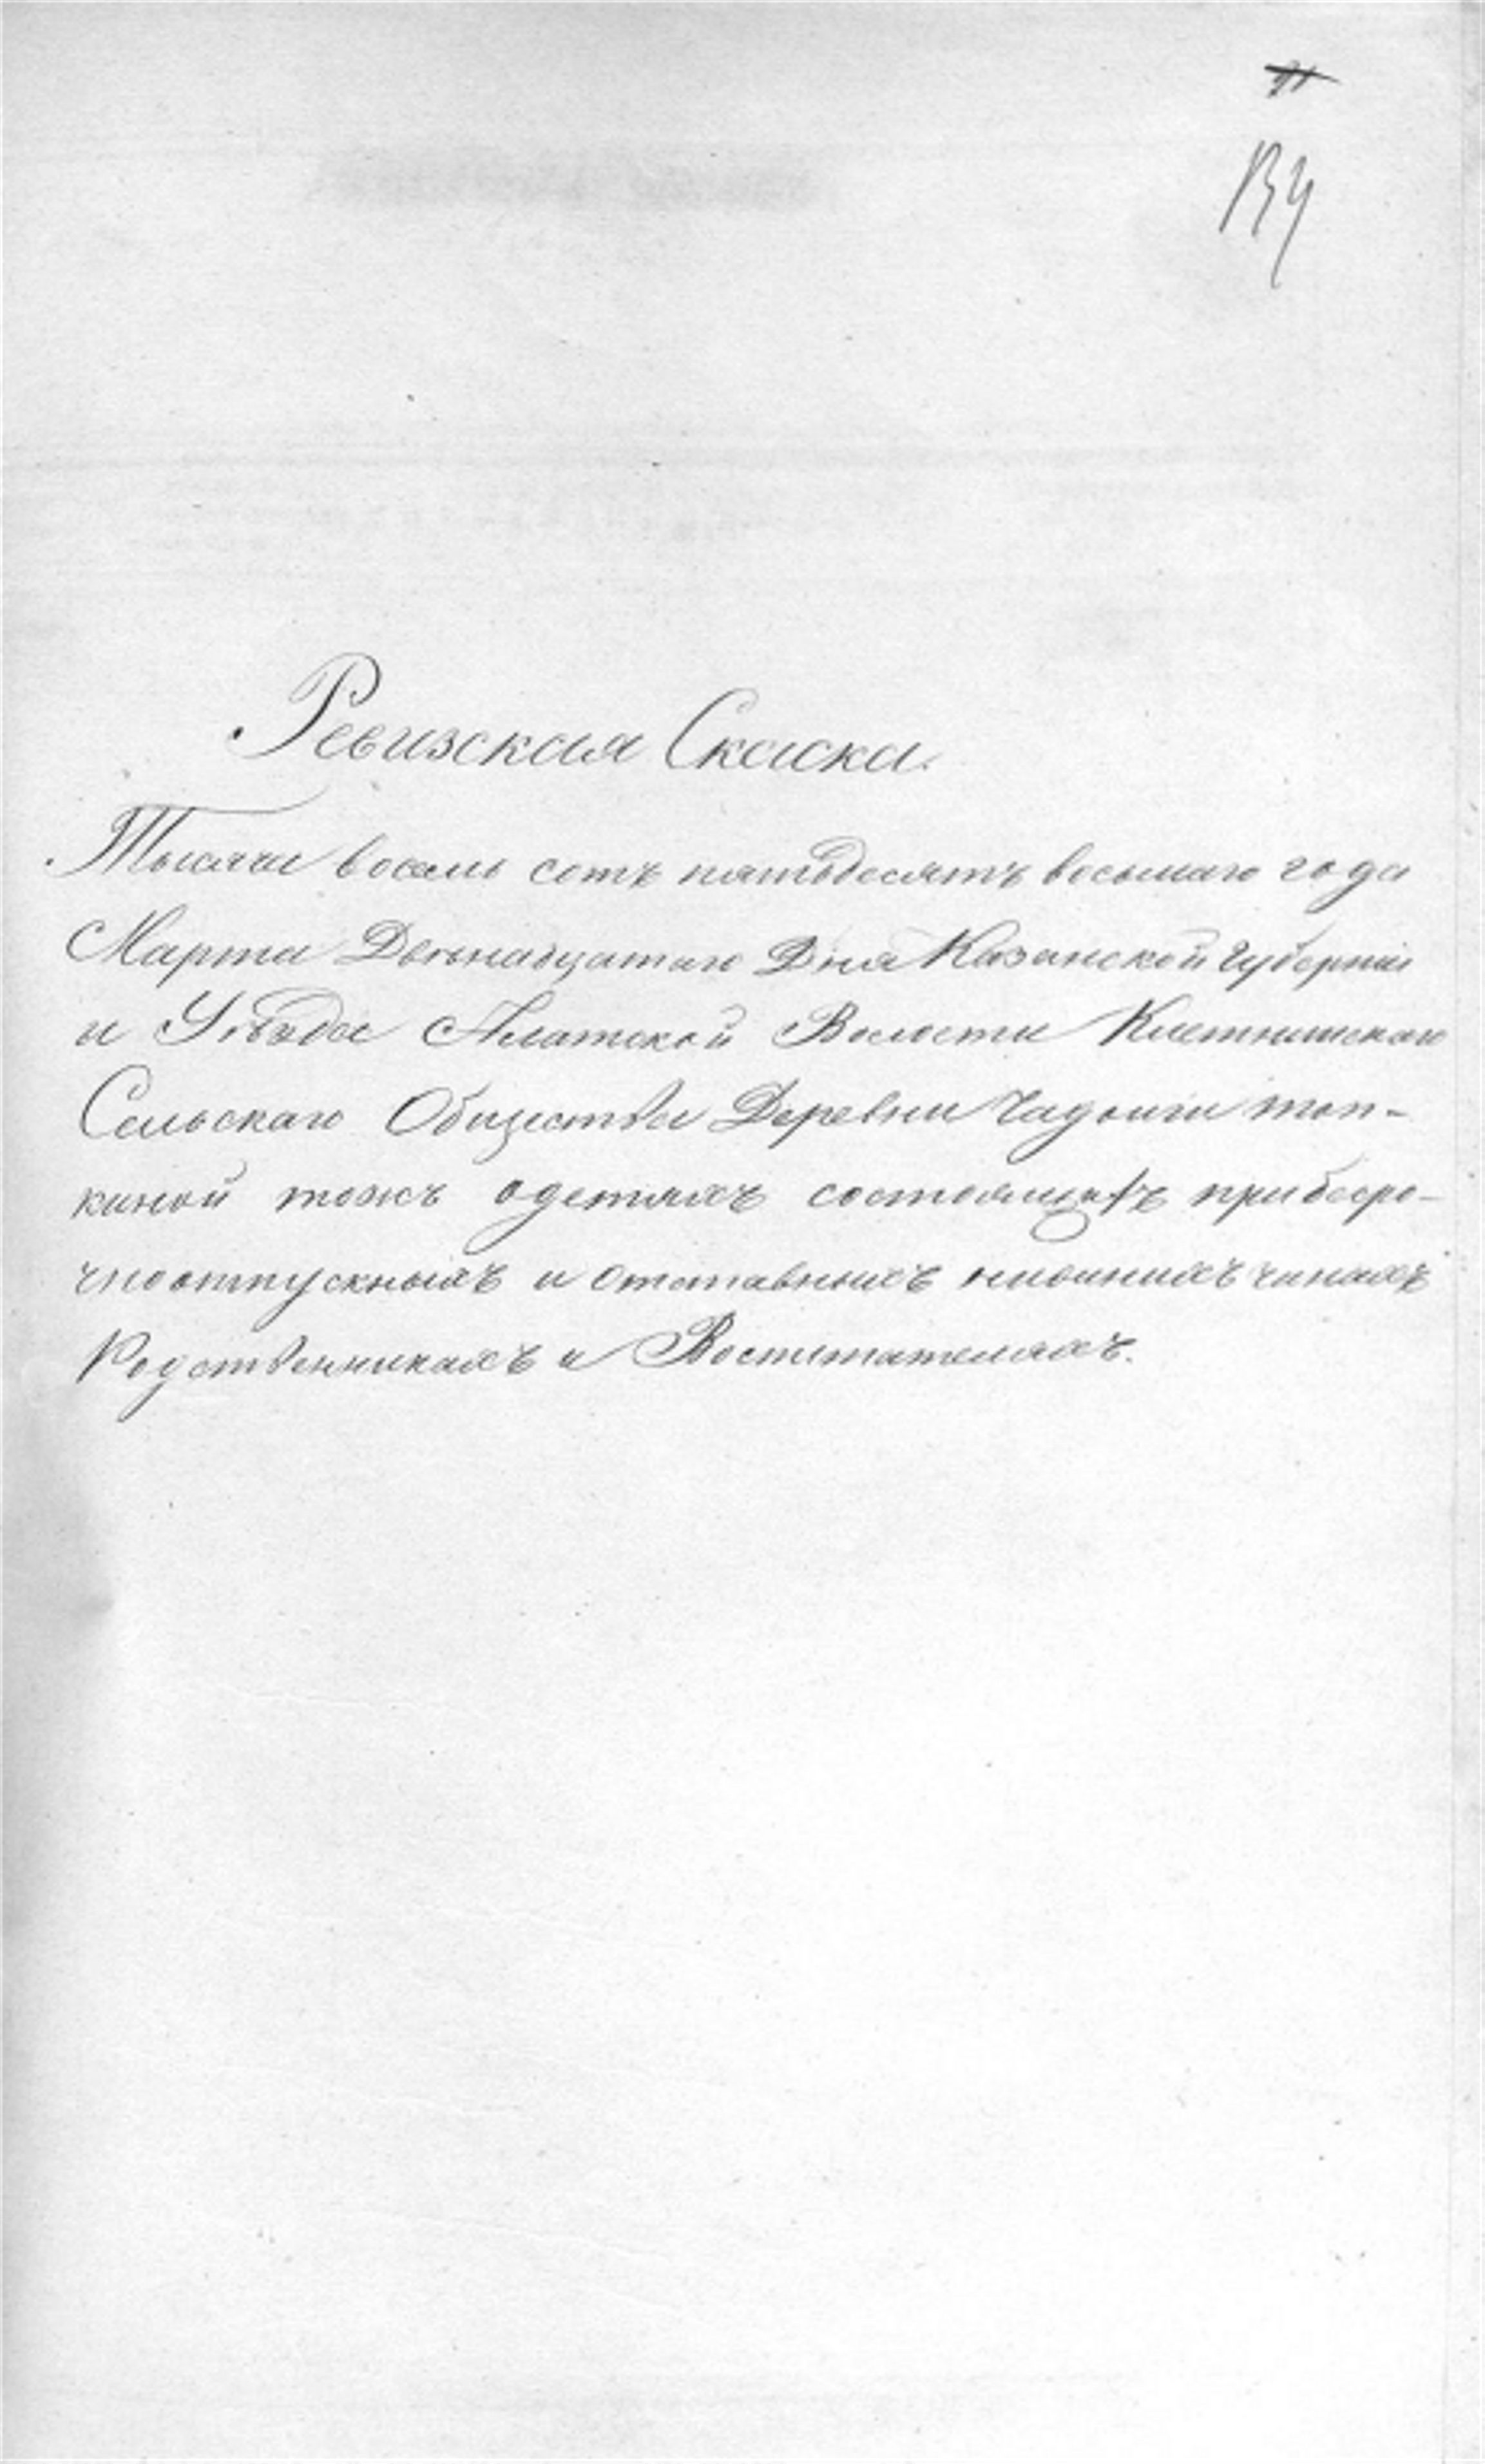 134
Ревизская Скаска.
Тысяча восемь сотъ пятьдесятъ восьмаго года
Марта Двенадцатаго Дня Казанской Губерніи
и Уѣзда Алатской Волости
Сельскаго Общества Деревни топ-
киной тожъ одетяхъ состоящихъ прибезро-
чноотпускныхъ и отставныхъ нижнихъ чинахъ
Родственникахъ и Воспитателяхъ.